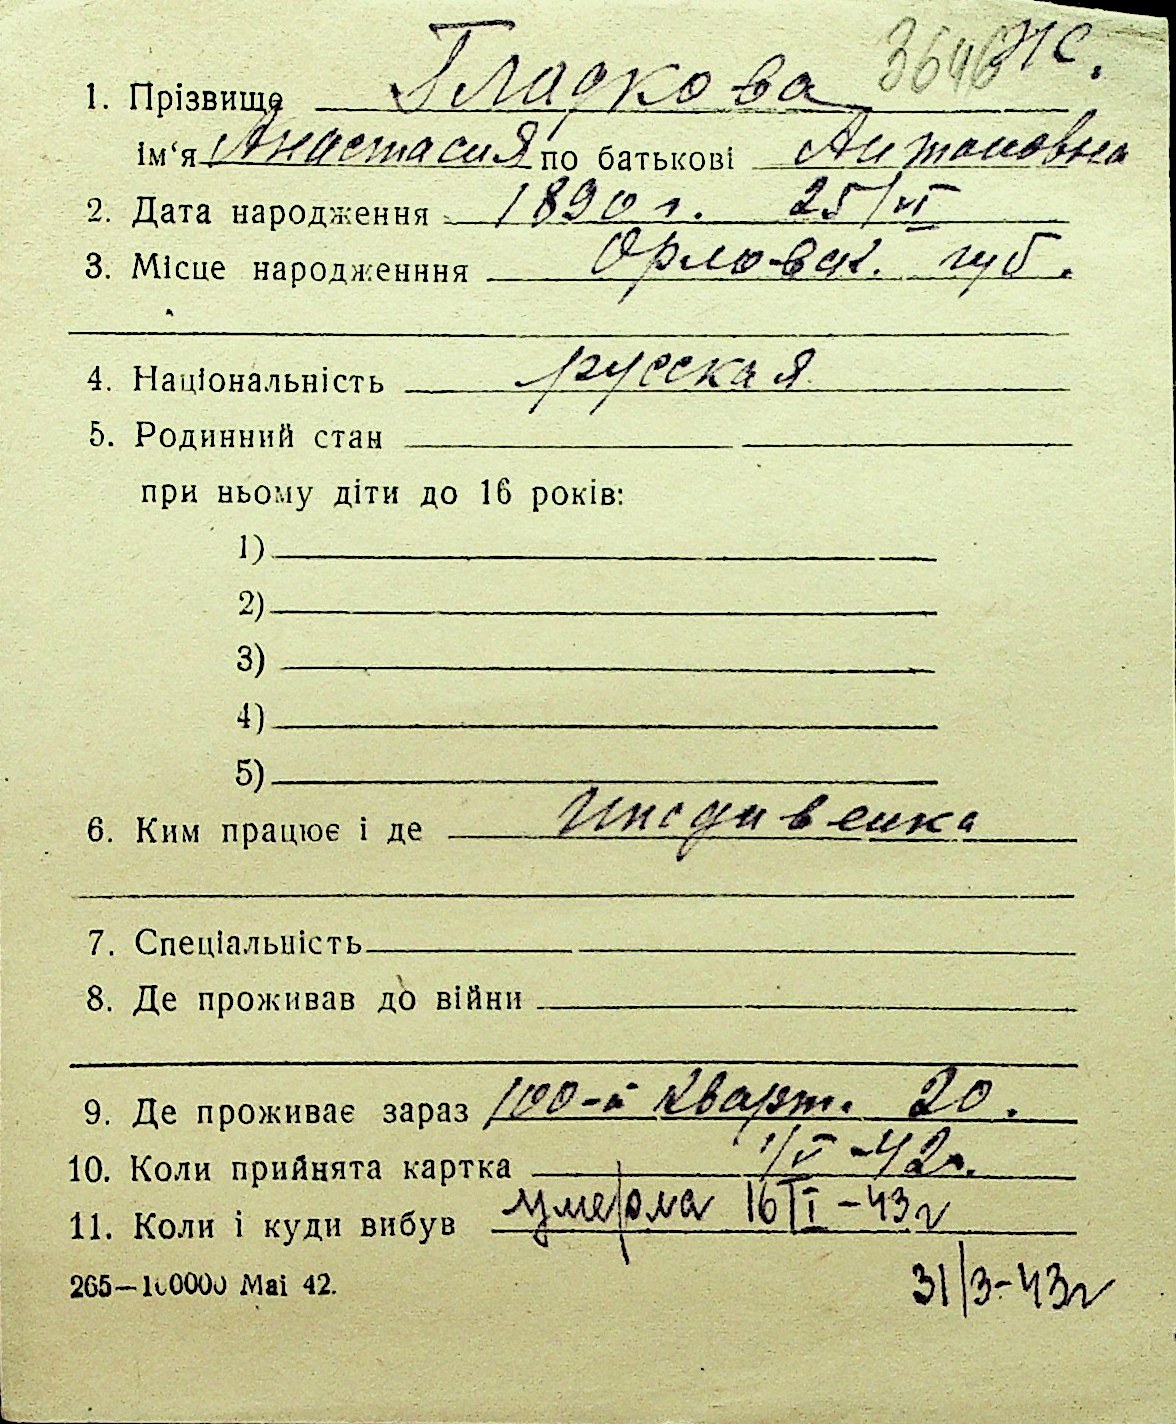 3646 Ж.
1. Прізвище Гладкова
ім‘я Анастасия по батькові Антоновна
2. Дата народження 1890 г. 25/VI
3. Місце народженння Орловск. губ.
4. Національність русская
5. Родинний стан
при ньому діти до 16 років:
1)
2)
3)
4)
5)
6. Ким працює і де Иждивенка
7. Спеціальність
8. Де проживав до війни
9. Де проживає зараз 100-й Кварт. 20.
10. Коли прийнята картка 1/VI -42г.
11. Коли і куди вибув умерла 16/I -43г
265—100000 Mai 42.
31/3-43г